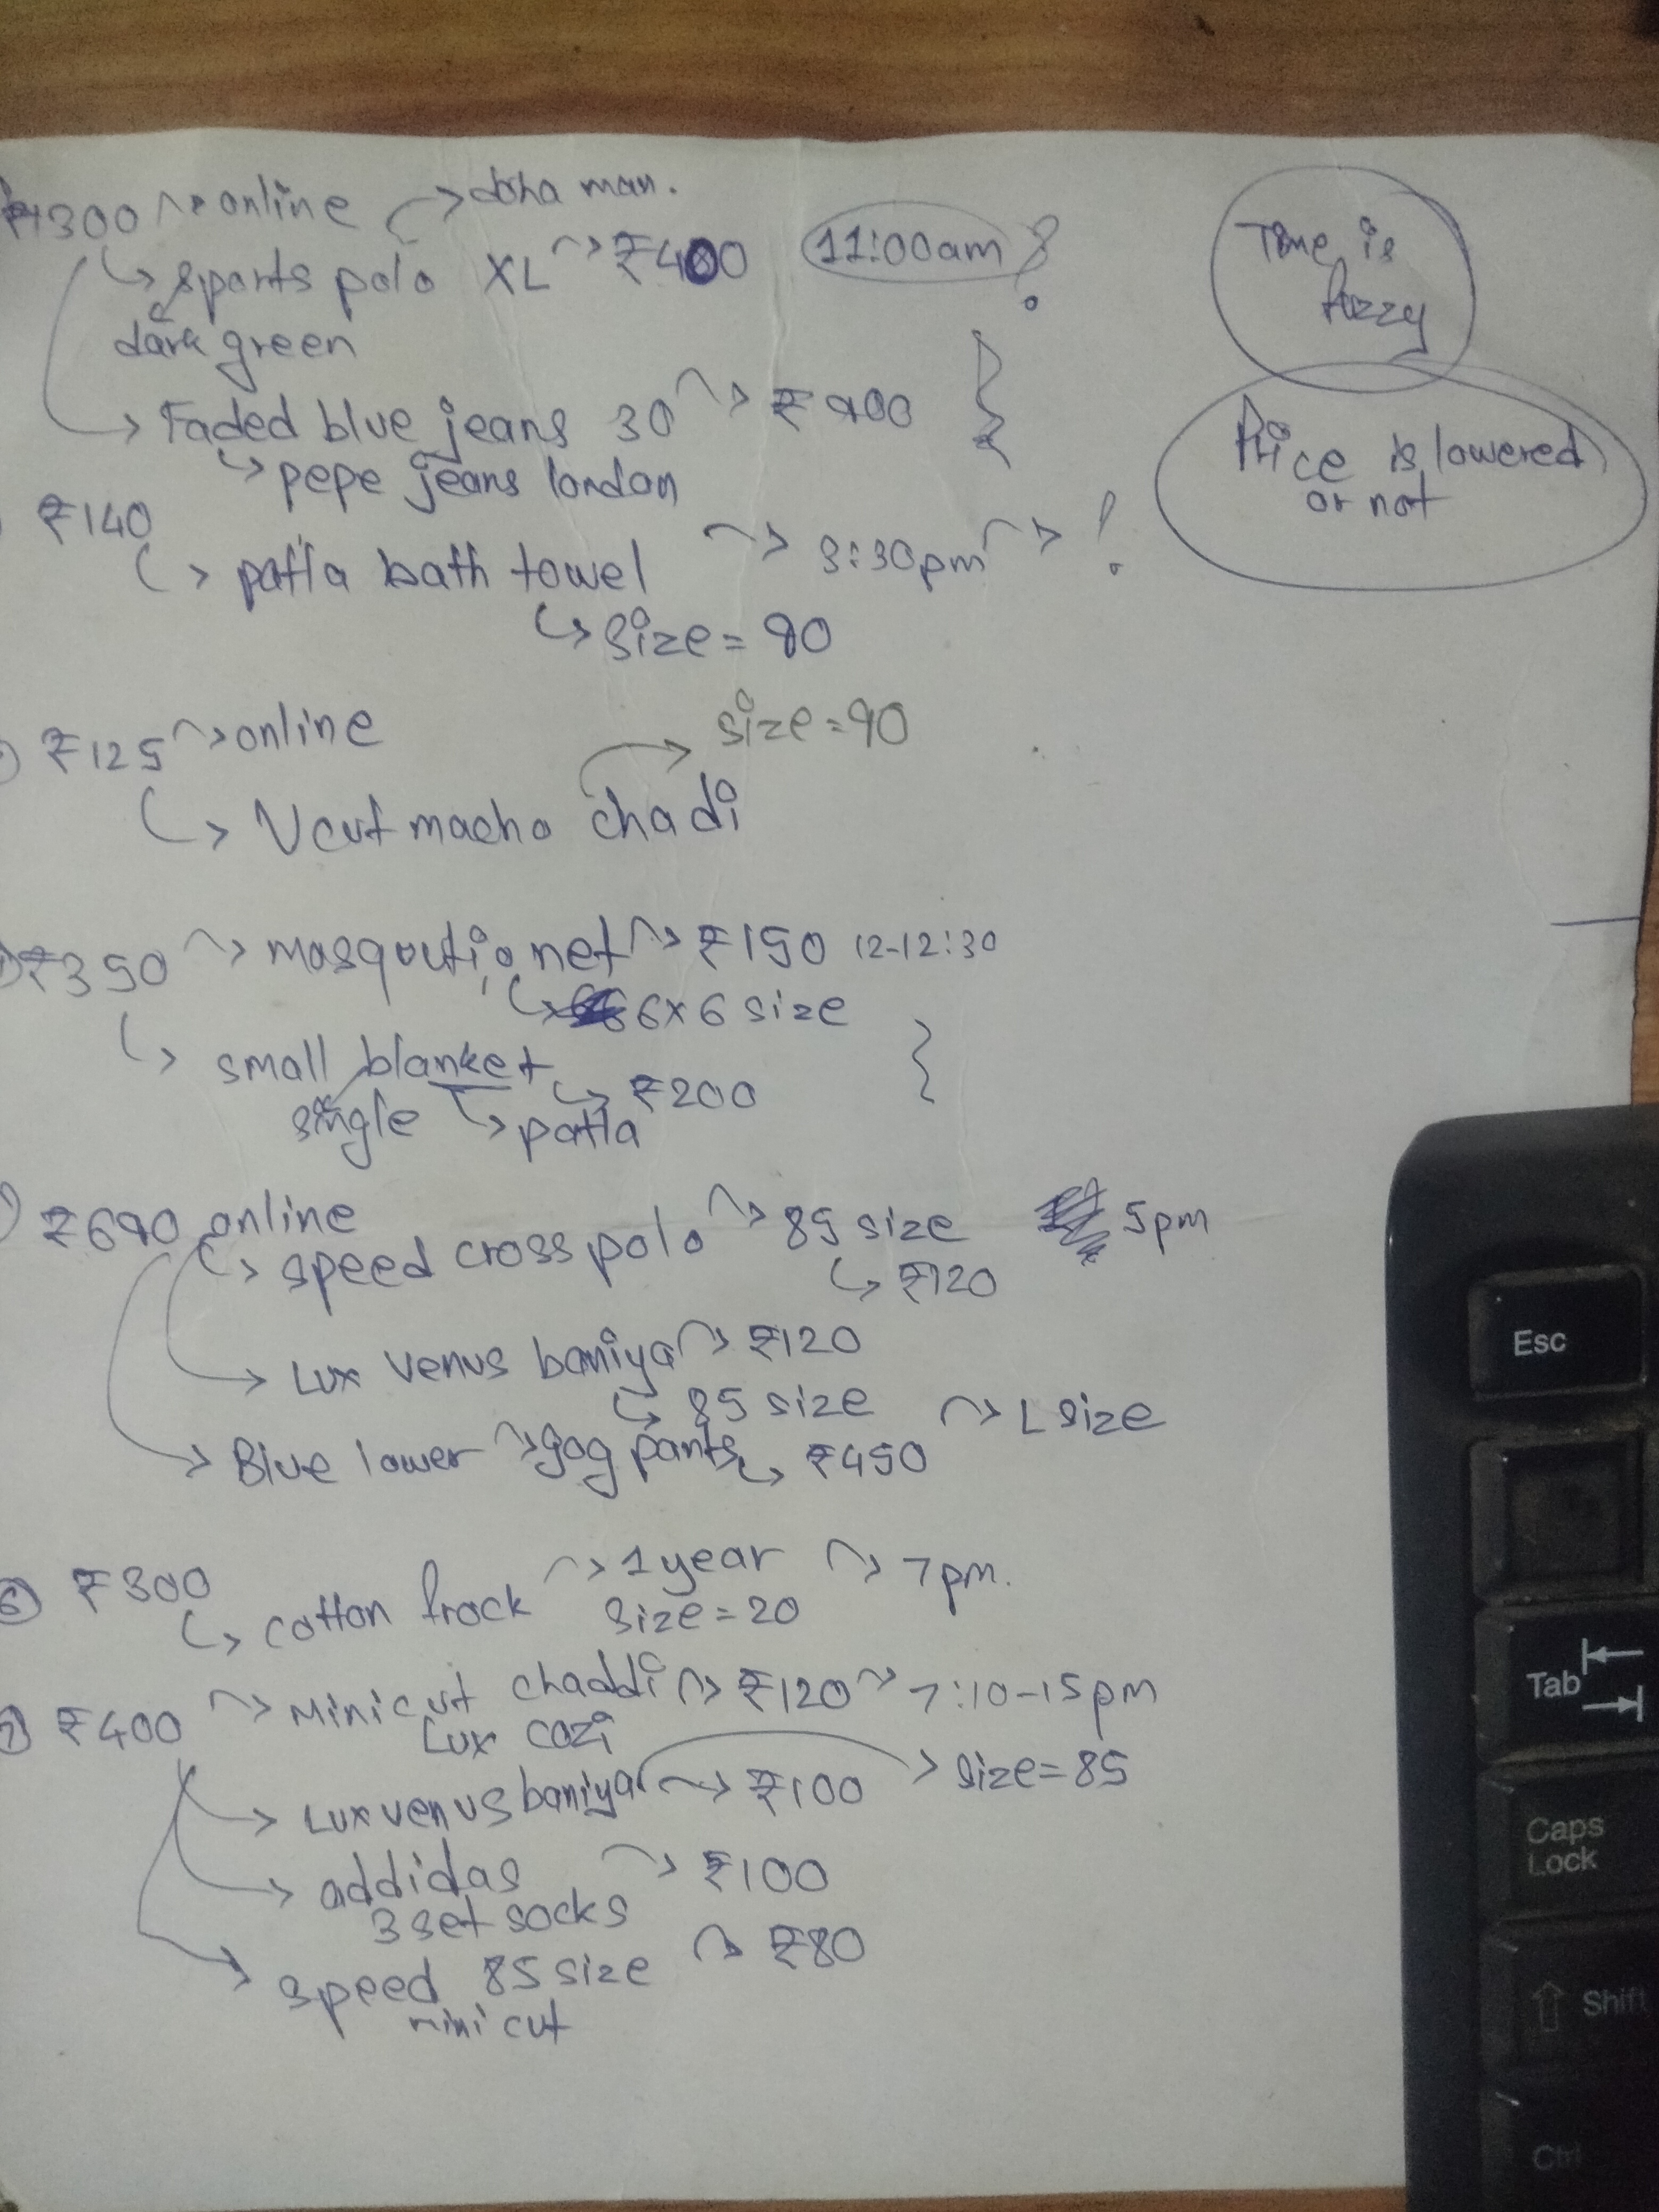 ₹1300 → online → doha man.
↳ sports polo XL → ₹400 11:00am ?
dark green
Time is
fuzzy
→ Faded blue jeans 30 → ₹900 }
↳ pepe jeans london
Price is lowered
or not
₹140
↳ patla bath towel → 3:30pm → !
↳ size = 90
₹125 → online
↳ V cut macho chadi → size = 90
₹350 → mosqoutio net → ₹150 12-12:30
↳ 6x6 size
↳ small blanket ↳ ₹200 }
single ↳ patla
₹690 online
↳ speed cross polo → 85 size 5pm
↳ ₹120
→ Lux venus baniya → ₹120
↳ 85 size
→ Blue lower → gog pants ↳ ₹450 → L size
⑥ ₹300
↳ cotton frock → 1 year → 7pm.
size = 20
⑦ ₹400 → Mini cut chaddi → ₹120 → 7:10-15pm
Lux cozi
→ Lux venus baniya → ₹100 > size = 85
→ addidas → ₹100
3 set socks
→ speed 85 size → ₹80
mini cut
Esc
Tab
Caps
Lock
⇧ Shift
Ctrl